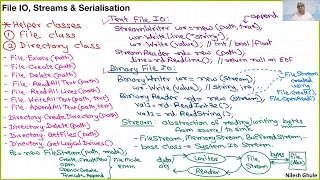 File IO, Streams & Serialisation
* Helper classes
① File class
② Directory class
- File.Exists(path)
- File.Create(path)
- File.Delete(path)
- File.ReadAllText(path)
- File.ReadAllLines(path)
- File.WriteAllText(path, text)
- File.AppendAllText(path, text)
- Directory.CreateDirectory(path)
- Directory.Delete(path)
- Directory.GetFiles(path)
- Directory.GetLogicalDrives()
fs = new FileStream(path, mode);
Text File IO:
append
StreamWriter wr = new (path, true);
wr.WriteLine("string");
wr.Write(value); // int/bool/float
StreamReader rdr = new (path);
line = rd.ReadLine(); // return null on EOF
Binary File IO:
BinaryWriter wr = new (stream)
wr.Write(value) // int, string
BinaryReader rdr = new (stream);
val1 = rd.ReadInt32();
val2 = rd.ReadString();
File Stream
using
File.OpenRead()
Stream: abstraction of reading/writing bytes
from source/to sink
FileStream, MemoryStream, BufferedStream
base class = System.IO.Stream
Create, CreateNew
Open
Truncate, Append
File mode
enum
data
obj
Writer
Reader
File
Stream
Nilesh Ghule